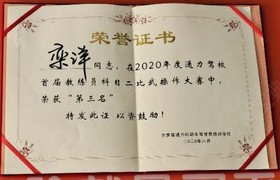 荣誉证书
栾洋同志，在2020年度通力驾校
首届教练员科目二比武操作大赛中，
荣获“第三名”
特发此证 以资鼓励！
二〇二〇年八月